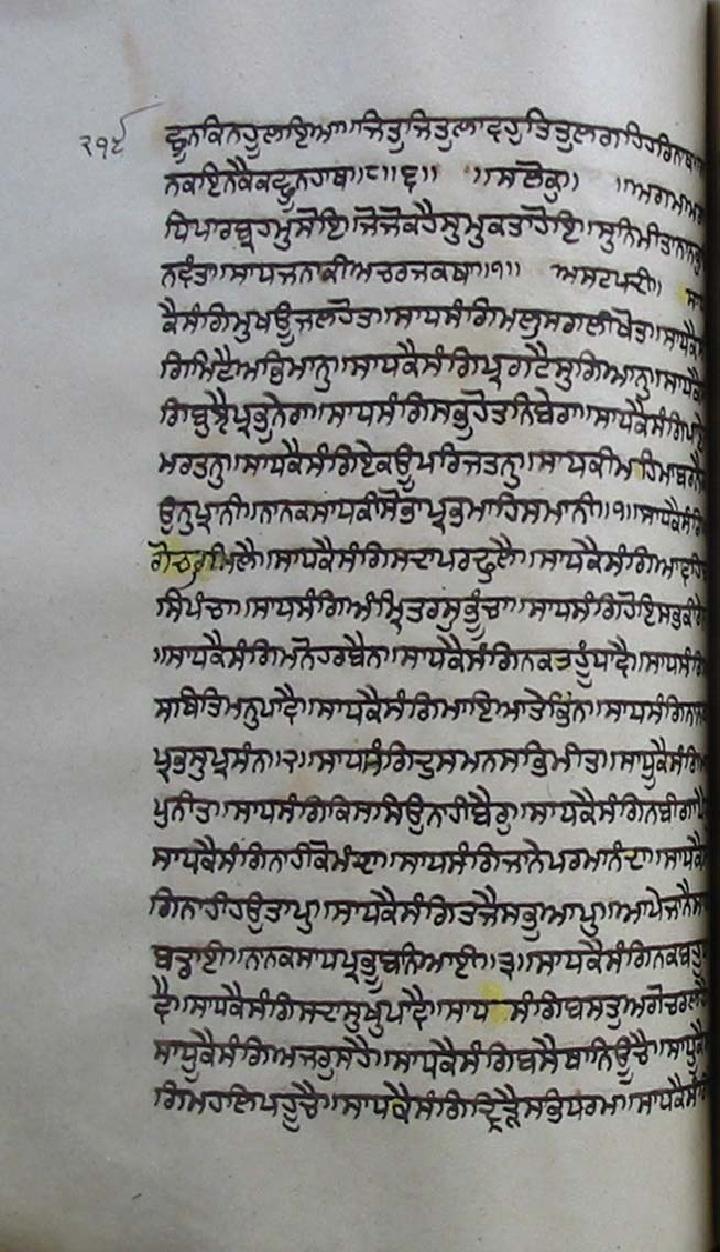 ੨੧੯
ਦੂਨਕਿਨਹੂਲਾਇਆ॥ਜਿਤੁਜਿਤੁਲਾਵਹੁਤਿਤੁਲਗਹਿਹਰਿਨਾਥ
ਨਕਇਨਕੈਕਛੂਨਹਾਥ॥੮॥੬॥ ॥ਸਲੋਕੁ॥ ॥ਅਗਮਅਗ
ਧਿਪਾਰਬ੍ਰਹਮੁਸੋਇ॥ਜੋਜੋਕਹੈਸੁਮੁਕਤਾਹੋਇ॥ਸੁਨਿਮੀਤਾਨਾਨਕੁ
ਨਵੰਤਾ॥ਸਾਧਜਨਾਕੀਅਚਰਜਕਥਾ॥੧॥ ਅਸਟਪਦੀ॥ ਸਾਧ
ਕੈਸੰਗਿਮੁਖਊਜਲਹੋਤ॥ਸਾਧਸੰਗਿਮਲੁਸਗਲੀਖੋਤ॥ਸਾਧਕੈਸੰ
ਗਿਮਿਟੈਅਭਿਮਾਨੁ॥ਸਾਧਕੈਸੰਗਿਪ੍ਰਗਟੈਸੁਗਿਆਨੁ॥ਸਾਧਕੈਸੰ
ਗਿਬੁਝੈਪ੍ਰਭੁਨੇਰਾ॥ਸਾਧਸੰਗਿਸਭੁਹੋਤਨਿਬੇਰਾ॥ਸਾਧਕੈਸੰਗਿਪਾਏ
ਮਰਤਨੁ॥ਸਾਧਕੈਸੰਗਿਏਕਊਪਰਿਜਤਨੁ॥ਸਾਧਕੀਮਹਿਮਾਬਰਨੈ
ਉਨੁਪ੍ਰਾਨੀ॥ਨਾਨਕਸਾਧਕੀਸੋਭਾਪ੍ਰਭਮਾਹਿਸਮਾਨੀ॥੧॥ਸਾਧਕੈਸੰਗਿ
ਗੋਚਰੁਮਿਲੈ॥ਸਾਧਕੈਸੰਗਿਸਦਾਪਰਫੁਲੈ॥ਸਾਧਕੈਸੰਗਿਆਵਹਿ
ਸਿਪੰਚਾ॥ਸਾਧਸੰਗਿਅੰਮ੍ਰਿਤਰਸੁਭੁੰਚਾ॥ਸਾਧਸੰਗਿਹੋਇਸਭਕੀਰੇਨ
॥ਸਾਧਕੈਸੰਗਿਮਨੋਹਰਬੈਨ॥ਸਾਧਕੈਸੰਗਿਨਕਤਹੂੰਧਾਵੈ॥ਸਾਧਸੰਗਿ
ਸਥਿਤਿਮਨੁਪਾਵੈ॥ਸਾਧਕੈਸੰਗਿਮਾਇਆਤੇਭਿੰਨ॥ਸਾਧਸੰਗਿਨਾਨਕ
ਪ੍ਰਭਸੁਪ੍ਰਸੰਨ॥੨॥ਸਾਧਸੰਗਿਦੁਸਮਨਸਭਿਮੀਤ॥ਸਾਧੂਕੈਸੰਗਿਮ
ਪੁਨੀਤ॥ਸਾਧਸੰਗਿਕਿਸਸਿਉਨਾਹੀਬੈਰੁ॥ਸਾਧਕੈਸੰਗਿਨਬੀਗਾਪੈ
ਸਾਧਕੈਸੰਗਿਨਾਹੀਕੋਮੰਦਾ॥ਸਾਧਸੰਗਿਜਾਨੇਪਰਮਾਨੰਦਾ॥ਸਾਧਕੈਸੰ
ਗਿਨਾਹੀਹਉਤਾਪੁ॥ਸਾਧਕੈਸੰਗਿਤਜੈਸਭੁਆਪੁ॥ਆਪੇਜਾਨੈਸਾਧ
ਬਡਾਈ॥ਨਾਨਕਸਾਧਪ੍ਰਭੂਬਨਿਆਈ॥੩॥ਸਾਧਕੈਸੰਗਿਨਕਬਹੂਧਾ
ਵੈ॥ਸਾਧਕੈਸੰਗਿਸਦਾਸੁਖੁਪਾਵੈ॥ਸਾਧ ਸੰਗਿਬਸਤੁਅਗੋਚਰਲਹੈ
ਸਾਧੂਕੈਸੰਗਿਅਜਰੁਸਹੈ॥ਸਾਧਕੈਸੰਗਿਬਸੈਥਾਨਿਊਚੈ॥ਸਾਧੂਕੈਸੰ
ਗਿਮਹਲਿਪਹੂਚੈ॥ਸਾਧਕੈਸੰਗਿਦ੍ਰਿੜੈਸਭਿਧਰਮ॥ਸਾਧਕੈਸੰਗਿ